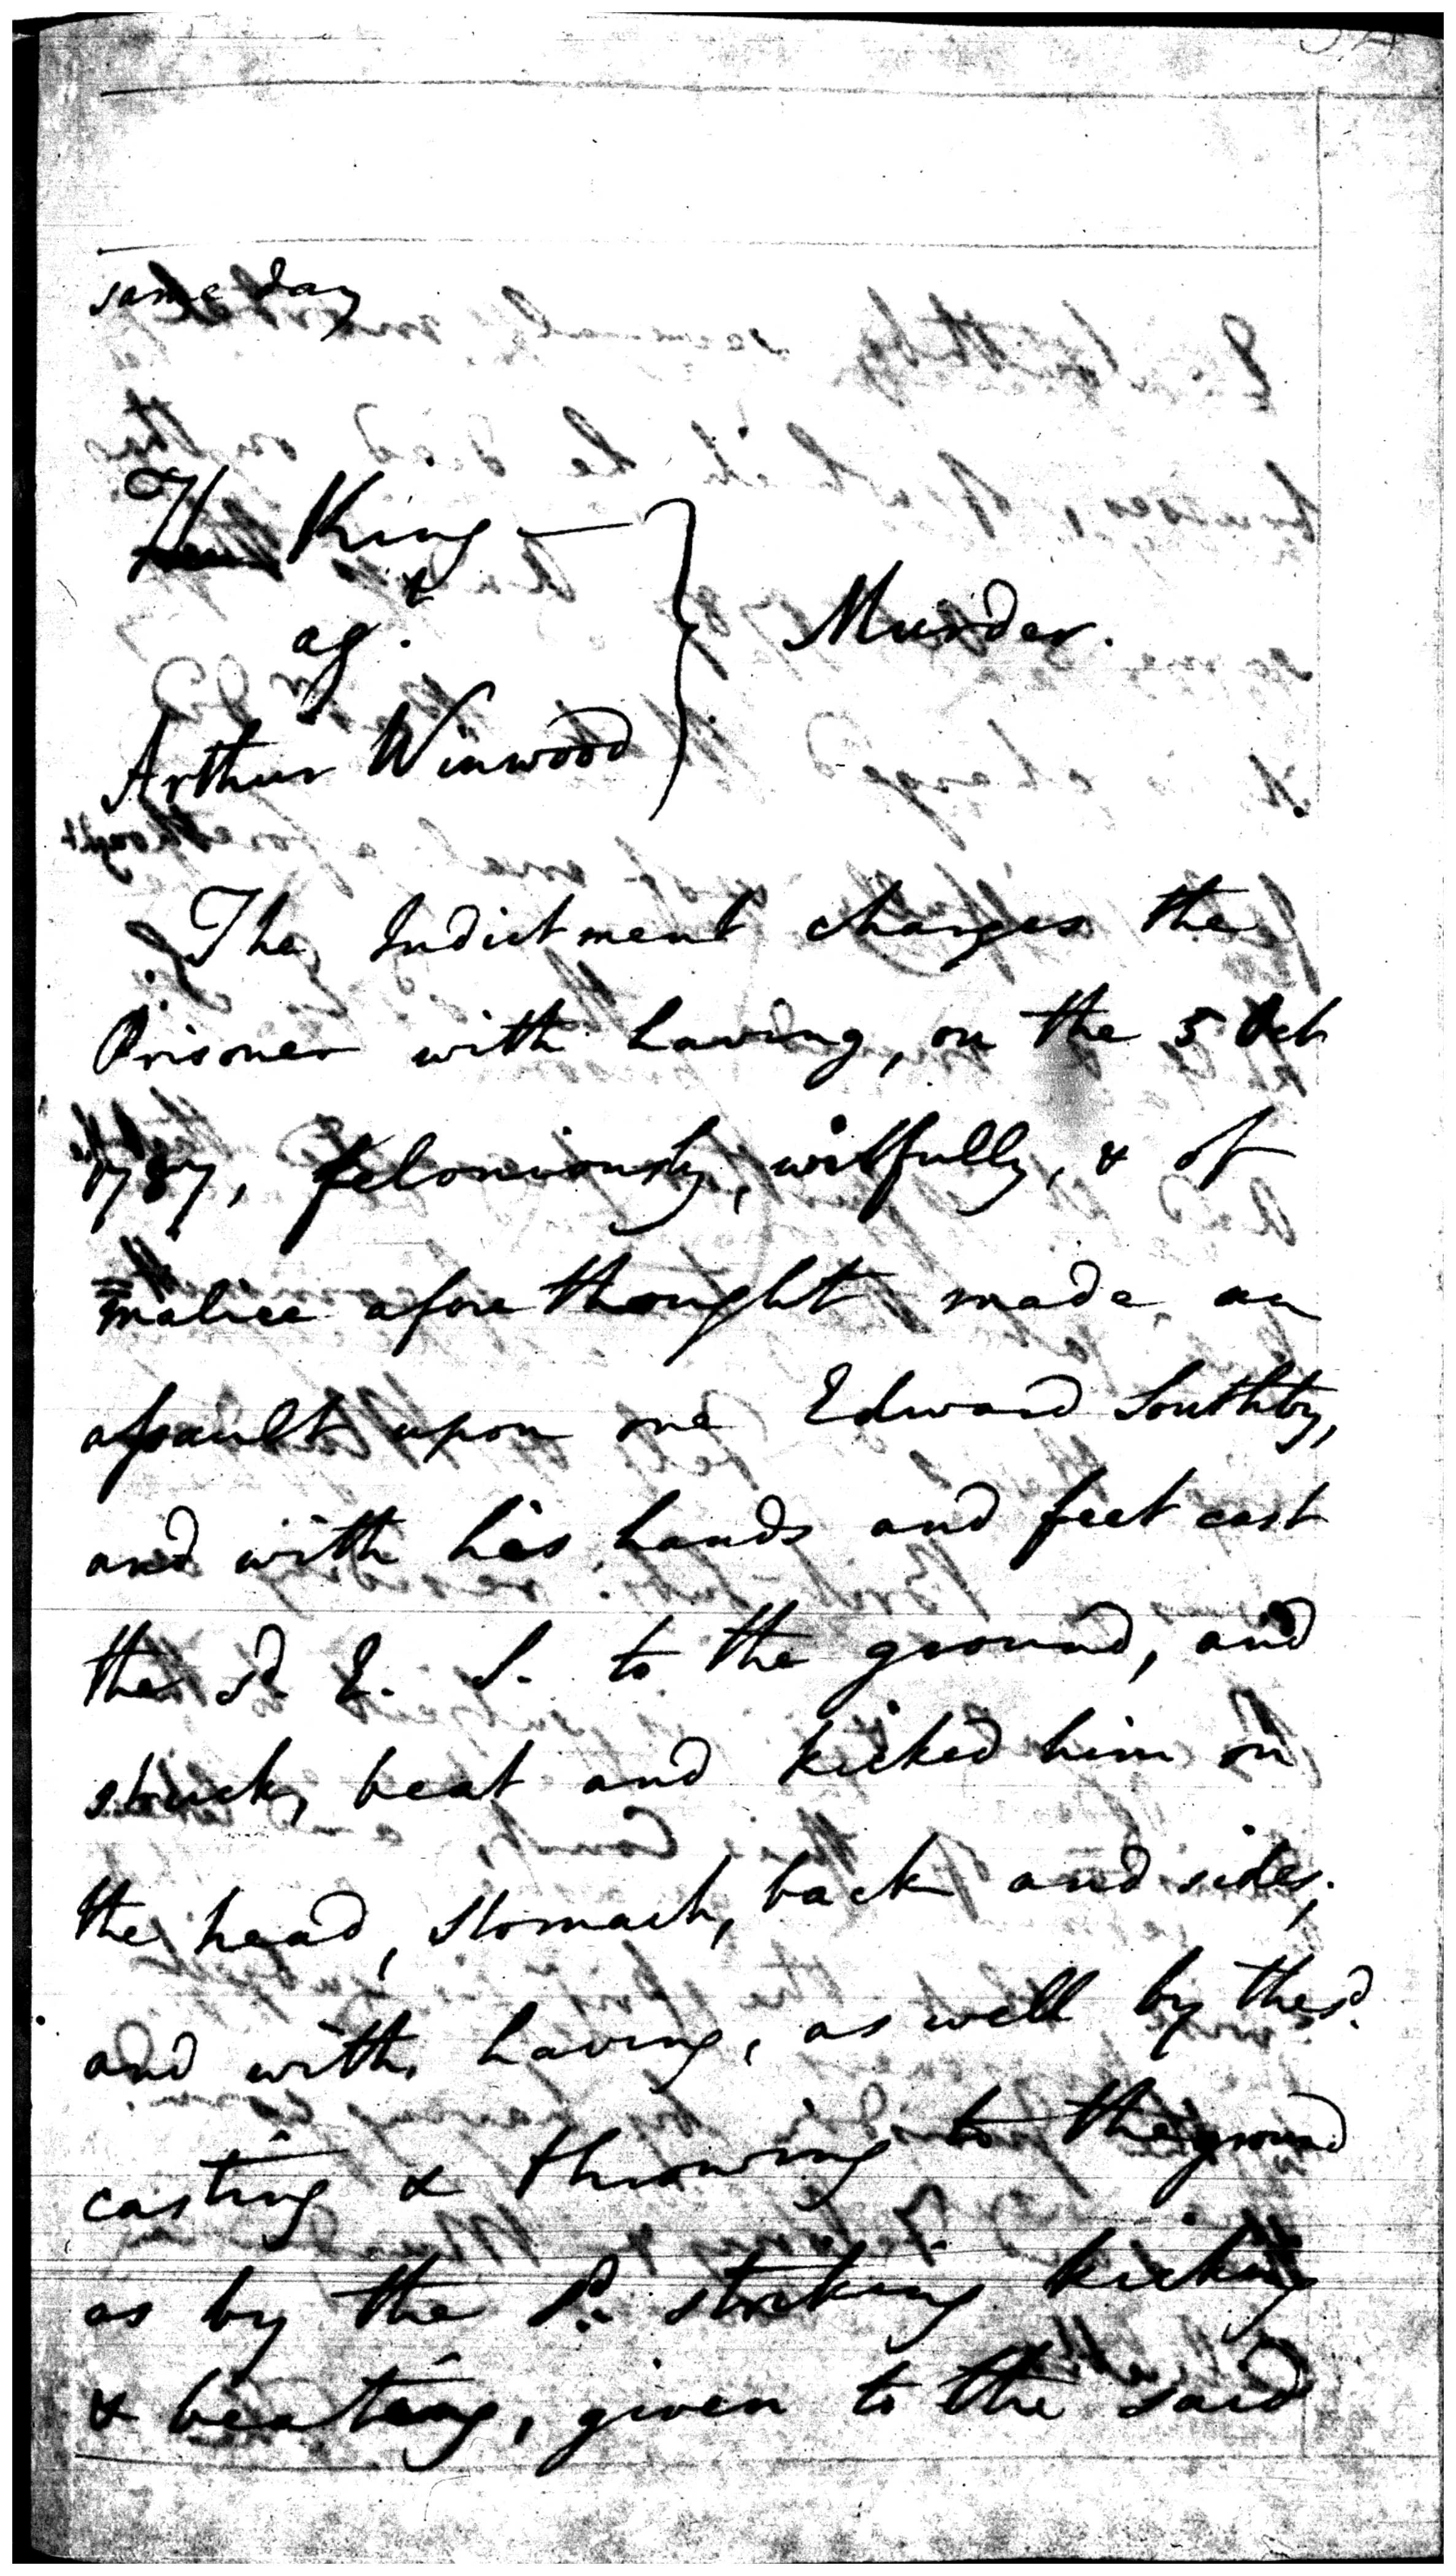 same day
The King —
ag.t
Arthur Winwood
Murder.
The Indictment charges the
Prisoner with having, on the 5 Oct
1787, feloniously, wilfully, & of
malice afore thought made an
assault upon one Edward Southby,
and with his hands and feet cast
the sd. E. S. to the ground, and
struck, beat and kicked him on
the head, stomach, back and sides;
and with having, as well by the sd.
casting & throwing to the ground
as by the sd. striking kicking
& beating, given to the said